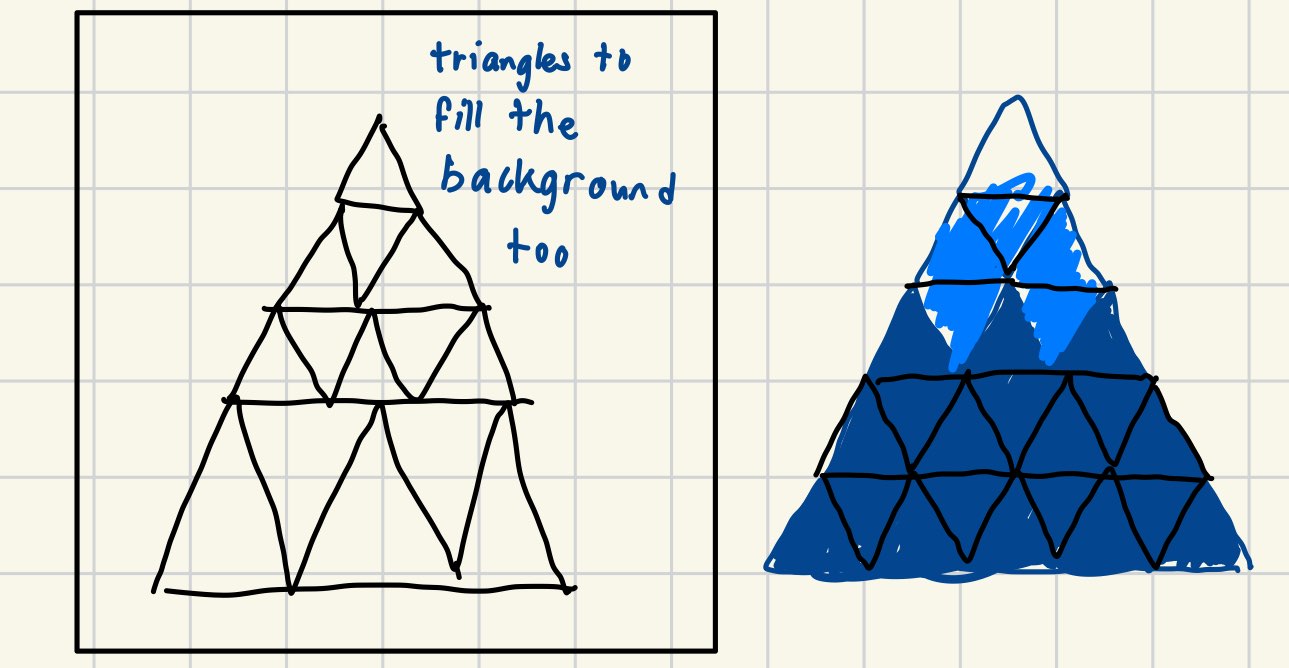 triangles to
fill the
background
too